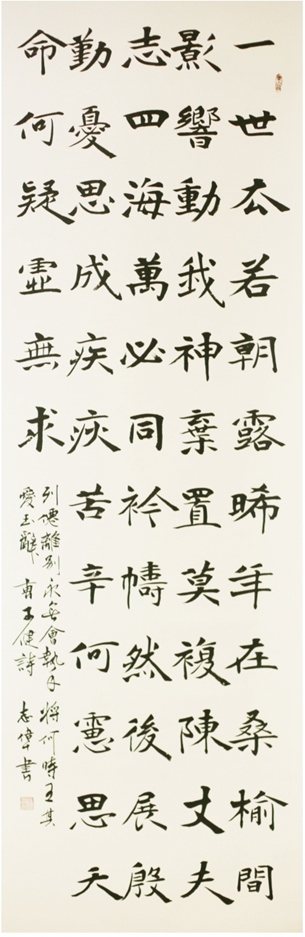 一世厺若朝露晞年在桑榆間
影響動我神棄置莫複陳丈夫
志四海萬必同衿幬然後展殷
勤憂思成疾疢苦辛何慮思天
命何疑虛無求
列僊離别永無會執手將何時王其
愛玉體 曹子健詩 志偉書